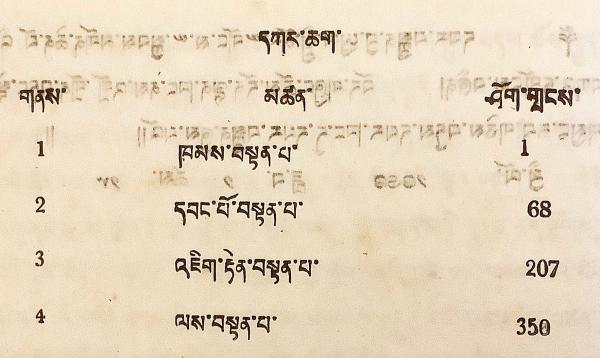 དཀར་ཆག་
གནས་ མཚོན་ ཤོག་གྲངས་
1 ཁམས་བསྟན་པ་ 1
2 དབང་པོ་བསྟན་པ་ 68
3 འཇིག་རྟེན་བསྟན་པ་ 207
4 ལས་བསྟན་པ་ 350